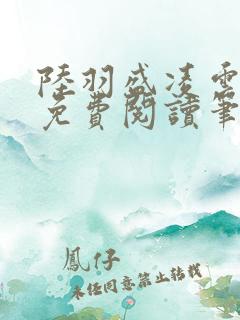 陸羽盛凌雲
免費閱讀筆
鳳仔
未經同意禁止轉載